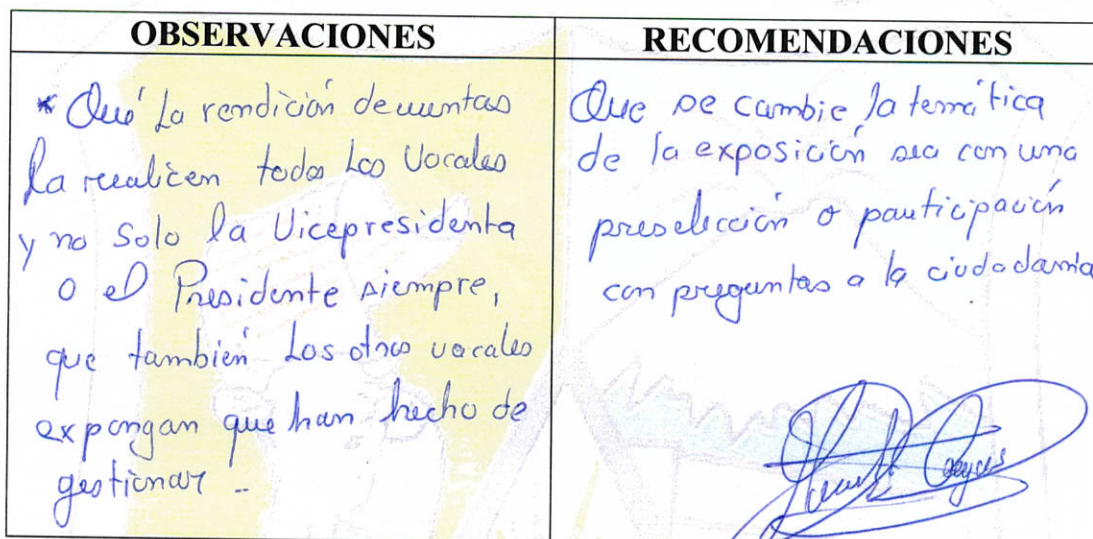 OBSERVACIONES
* Qué La rendición de cuentas
la realicen todos Los Vocales
y no Solo la Vicepresidenta
o el Presidente siempre,
que también Los otros vocales
expongan que han hecho de
gestionar -
RECOMENDACIONES
Que se cambie la temática
de la exposición sea con una
preselección o participación
con preguntas a la ciudadania